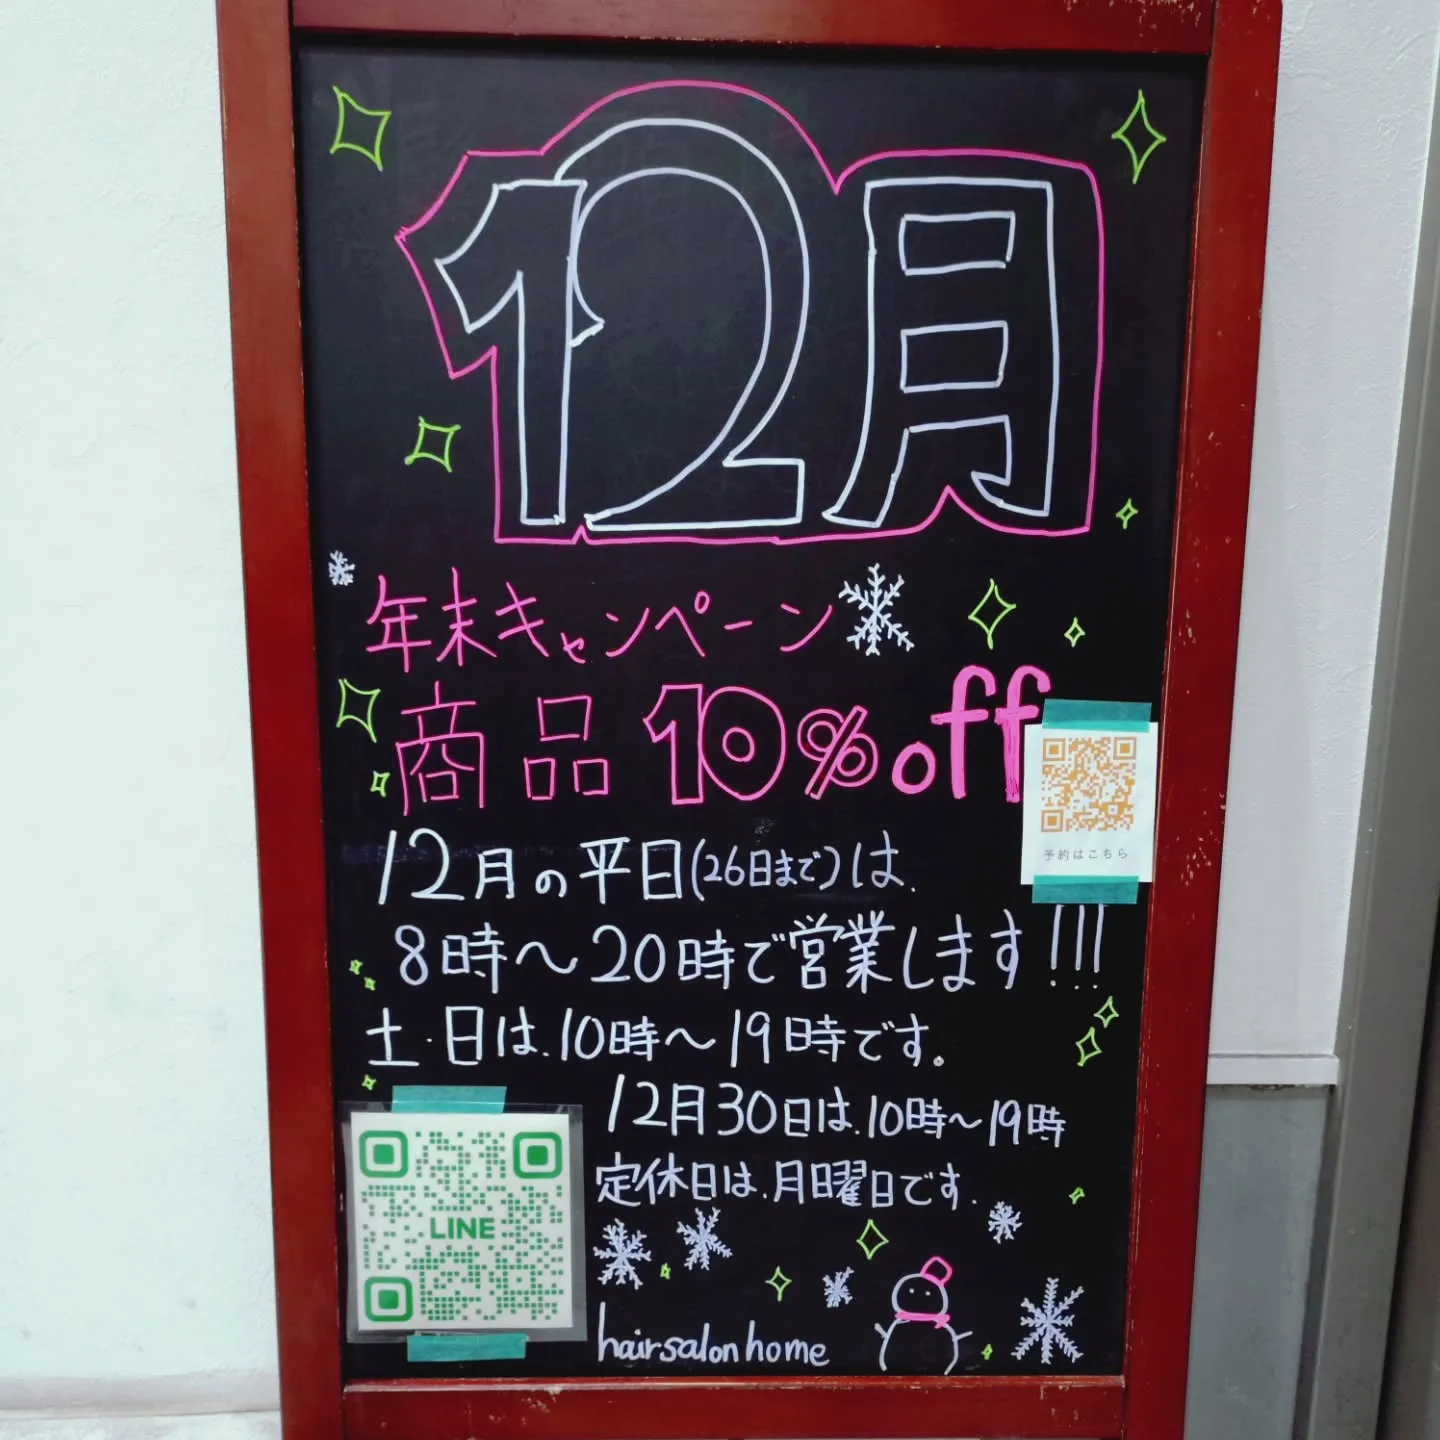 12月
年末キャンペーン
商品 10%off
予約はこちら
12月の平日(26日まで)は、
8時〜20時で営業します!!!
土・日は、10時〜19時です。
12月30日は、10時〜19時
定休日は、月曜日です。
LINE
hair salon home